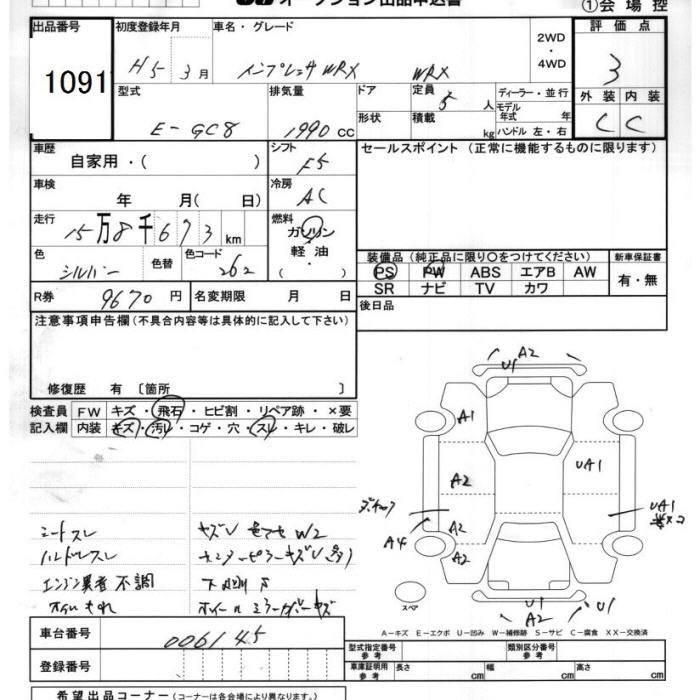 オークション出品申込書 ①会場控
出品番号 初度登録年月 車名・グレード 2WD・4WD 評価点
1091 H5年 3月 インプレッサWRX WRX 3
型式 排気量 ドア 定員 ディーラー・並行 外装 内装
E-GC8 1990cc 5人 モデル年式 年 C C
形状 積載 kg ハンドル 左・右
車歴 シフト セールスポイント (正常に機能するものに限ります)
自家用・( ) F5
車検 冷房
年 月( 日) AC
走行 燃料
15万8千673km ガソリン・軽油
色 色替 色コード ( )
シルバー 262
装備品(純正品に限り○をつけてください) 新車保証書
PS PW ABS エアB AW 有・無
SR ナビ TV カワ
R券 9670円 名変期限 月 日 後日品
注意事項申告欄(不具合内容等は具体的に記入して下さい)
修復歴 有〔箇所 〕
検査員 FW キズ・飛石・ヒビ割・リペア跡・×要
記入欄 内装 キズ・汚レ・コゲ・穴・スレ・キレ・破レ
シートスレ
ハンドルスレ
エンジン異音 不調
オイルもれ
A2
U1
A1
A2 UA1
A2 UA1
A4 A2
スペア
U1 U1
A2
A-キズ E-エクボ U-凹み W-補修跡 S-サビ C-腐食 XX-交換済
車台番号 006145
登録番号
型式指定番号 参考 類別区分番号 参考
車庫証明用 参考 長さ cm 幅 cm 高さ cm
希望出品コーナー(コーナーは各会場により異なります。)